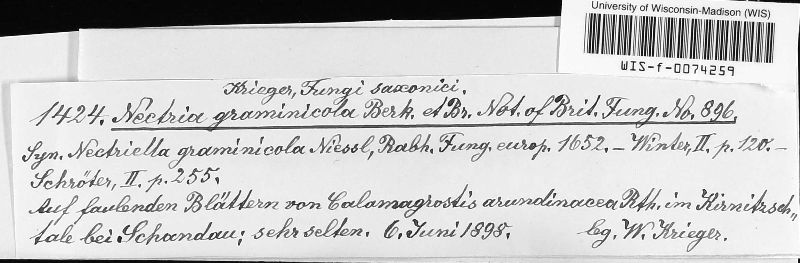 University of Wisconsin-Madison (WIS)
WIS-f-0074259
Krieger, Fungi saxonici.
1424. Nectria graminicola Berk. et Br. Not. of Brit. Fung. No. 896.
Syn. Nectriella graminicola Niessl, Rabh. Fung. europ. 1652. – Winter, II. p. 120. –
Schröter, II. p. 255.
Auf faulenden Blättern von Calamagrostis arundinacea Rth. im Kirnitzsch-
tale bei Schandau; sehr selten. 6. Juni 1898. lg. W. Krieger.